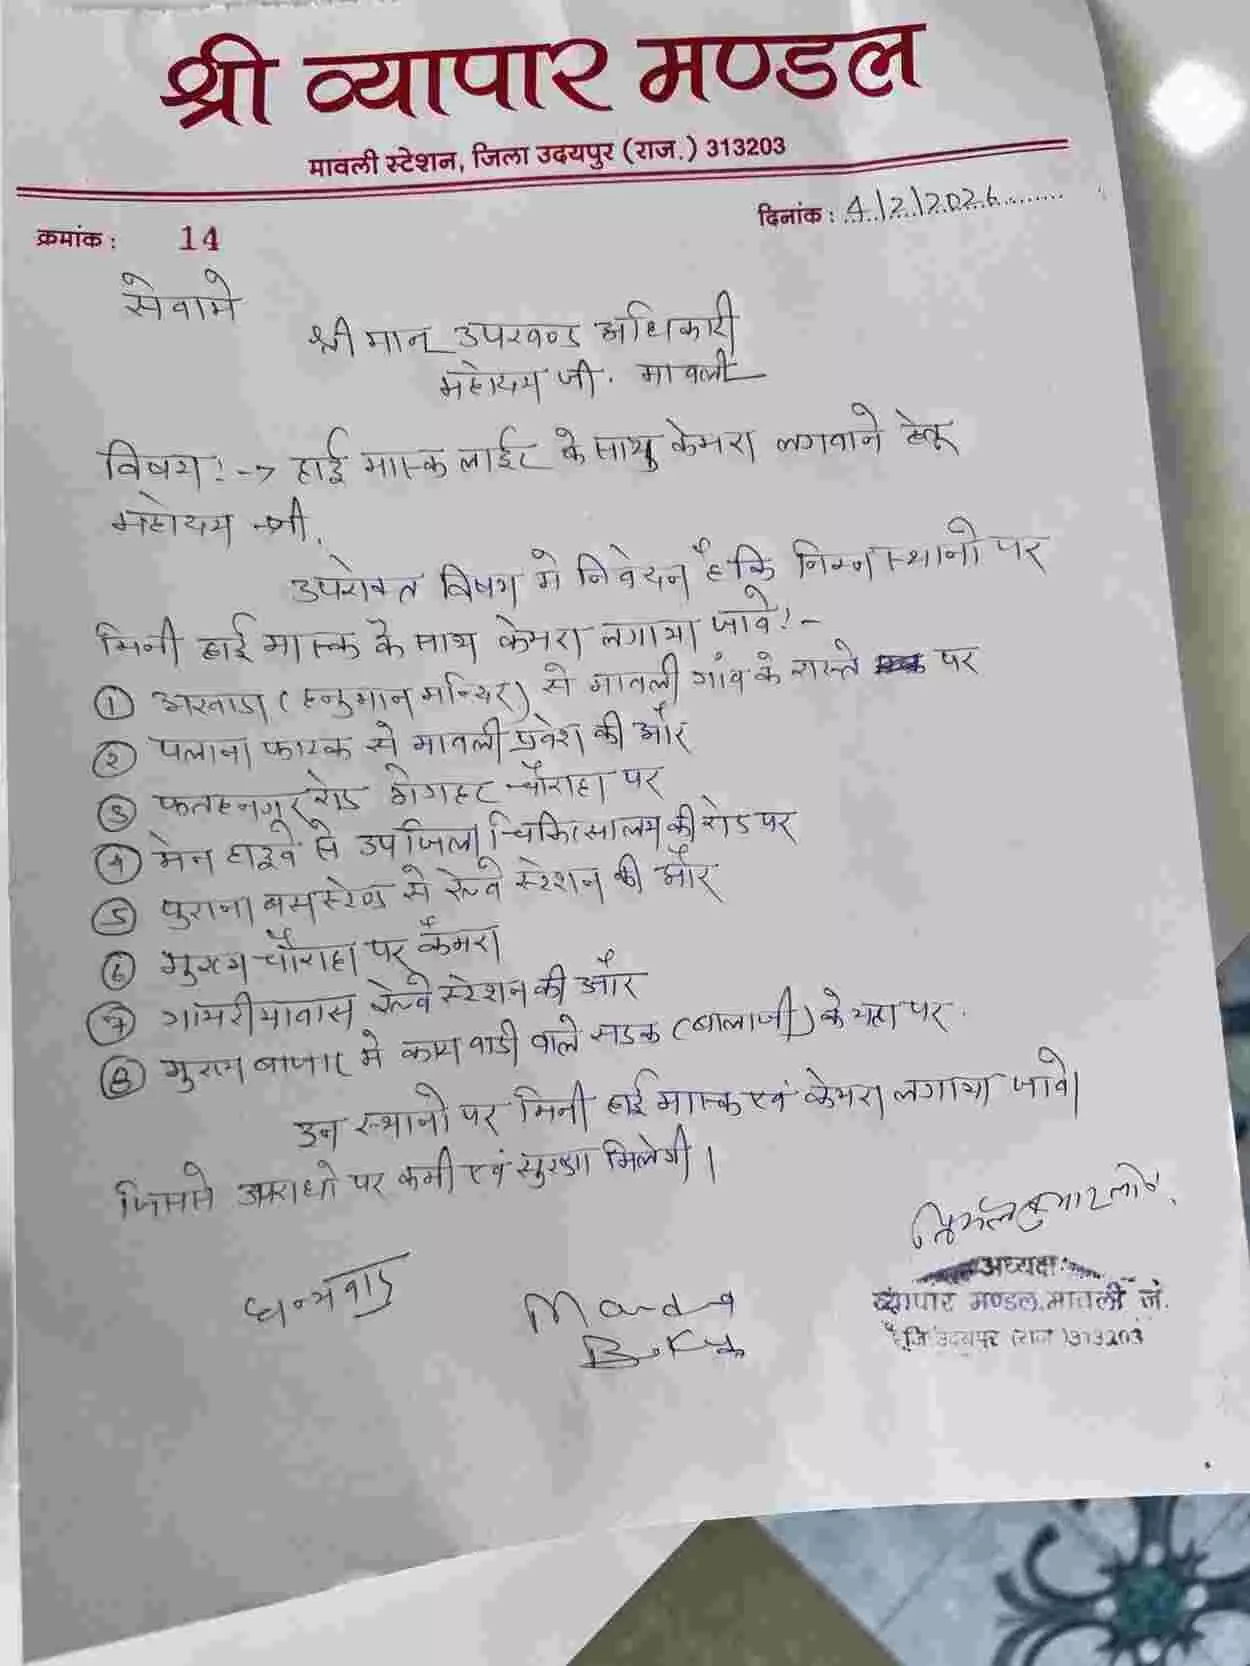 श्री व्यापार मण्डल
मावली स्टेशन, जिला उदयपुर (राज.) 313203
क्रमांक : 14
दिनांक : 4/2/2026
सेवामे
श्रीमान उपखण्ड अधिकारी
महोदय जी. मावली
विषय :--> हाई मास्क लाईट के साथ केमरा लगवाने हेतू
महोदय जी,
उपरोक्त विषय मे निवेदन है कि निम्न स्थानो पर
मिनी हाई मास्क के साथ केमरा लगाया जावे:-
① अखाडा (हनुमान मन्दिर) से मावली गांव के रास्ते पर
② पलाना फाटक से मावली प्रवेश की और
③ फतहनगर रोड चौराहा पर
④ मेन हाइवे से उपजिला चिकित्सालय की रोड पर
⑤ पुराना बसस्टेण्ड से रेल्वे स्टेशन की और
⑥ मुख्य चौराहा पर कैमरा
⑦ रेल्वे स्टेशन की और
⑧ मुख्य बाजार मे वाडी वाले सडक (बालाजी) के यहा पर.
उन स्थानो पर मिनी हाई मास्क एवं केमरा लगाया जावे।
जिससे अपराधो पर कमी एवं सुरक्षा मिलेगी।
धन्यवाद
अध्यक्ष
व्यापार मण्डल, मावली जं.
जि. उदयपुर (राज.) 313203